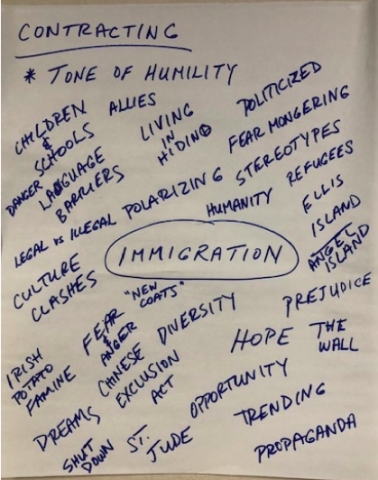 CONTRACTING
* TONE OF HUMILITY
CHILDREN
&
SCHOOLS
ALLIES
LIVING
IN
HIDING
POLITICIZED
FEAR MONGERING
STEREOTYPES
REFUGEES
DANGER
LANGUAGE
BARRIERS
POLARIZING
HUMANITY
ELLIS
ISLAND
ANGEL
ISLAND
LEGAL vs ILLEGAL
IMMIGRATION
CULTURE
CLASHES
"NEW
COATS"
FEAR
&
ANGER
DIVERSITY
PREJUDICE
HOPE
THE
WALL
IRISH
POTATO
FAMINE
CHINESE
EXCLUSION
ACT
OPPORTUNITY
TRENDING
DREAMS
SHUT
DOWN
ST.
JUDE
PROPAGANDA